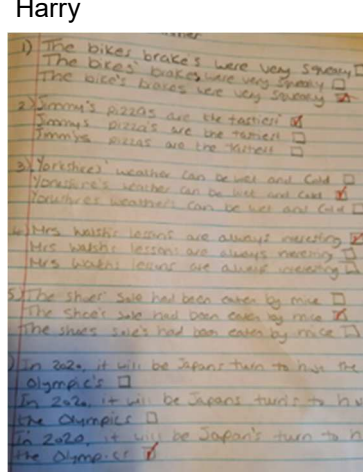 Harry
1) The bikes brake's were very squeaky
The bikes' brakes were very squeaky
The bike's brakes were very squeaky
2) Jimmy's pizzas are the tastiest
Jimmys pizza's are the tastiest
Jimmys pizzas are the tastiest
3) Yorkshires' weather can be wet and cold
Yorkshire's weather can be wet and cold
Yorkshires weather's can be wet and cold
Mrs lessons are always interesting
Mrs lessons are always interesting
Mrs lessons are always interesting
5) The sole had been eaten by mice
The shoe's sole had been eaten by mice
The shoes sole's had been eaten by mice
In 2020, it will be Japans turn to the
Olympic's
In 2020, it will be Japans turn's to
the Olympics
In 2020, it will be Japan's turn to h
the Olympics